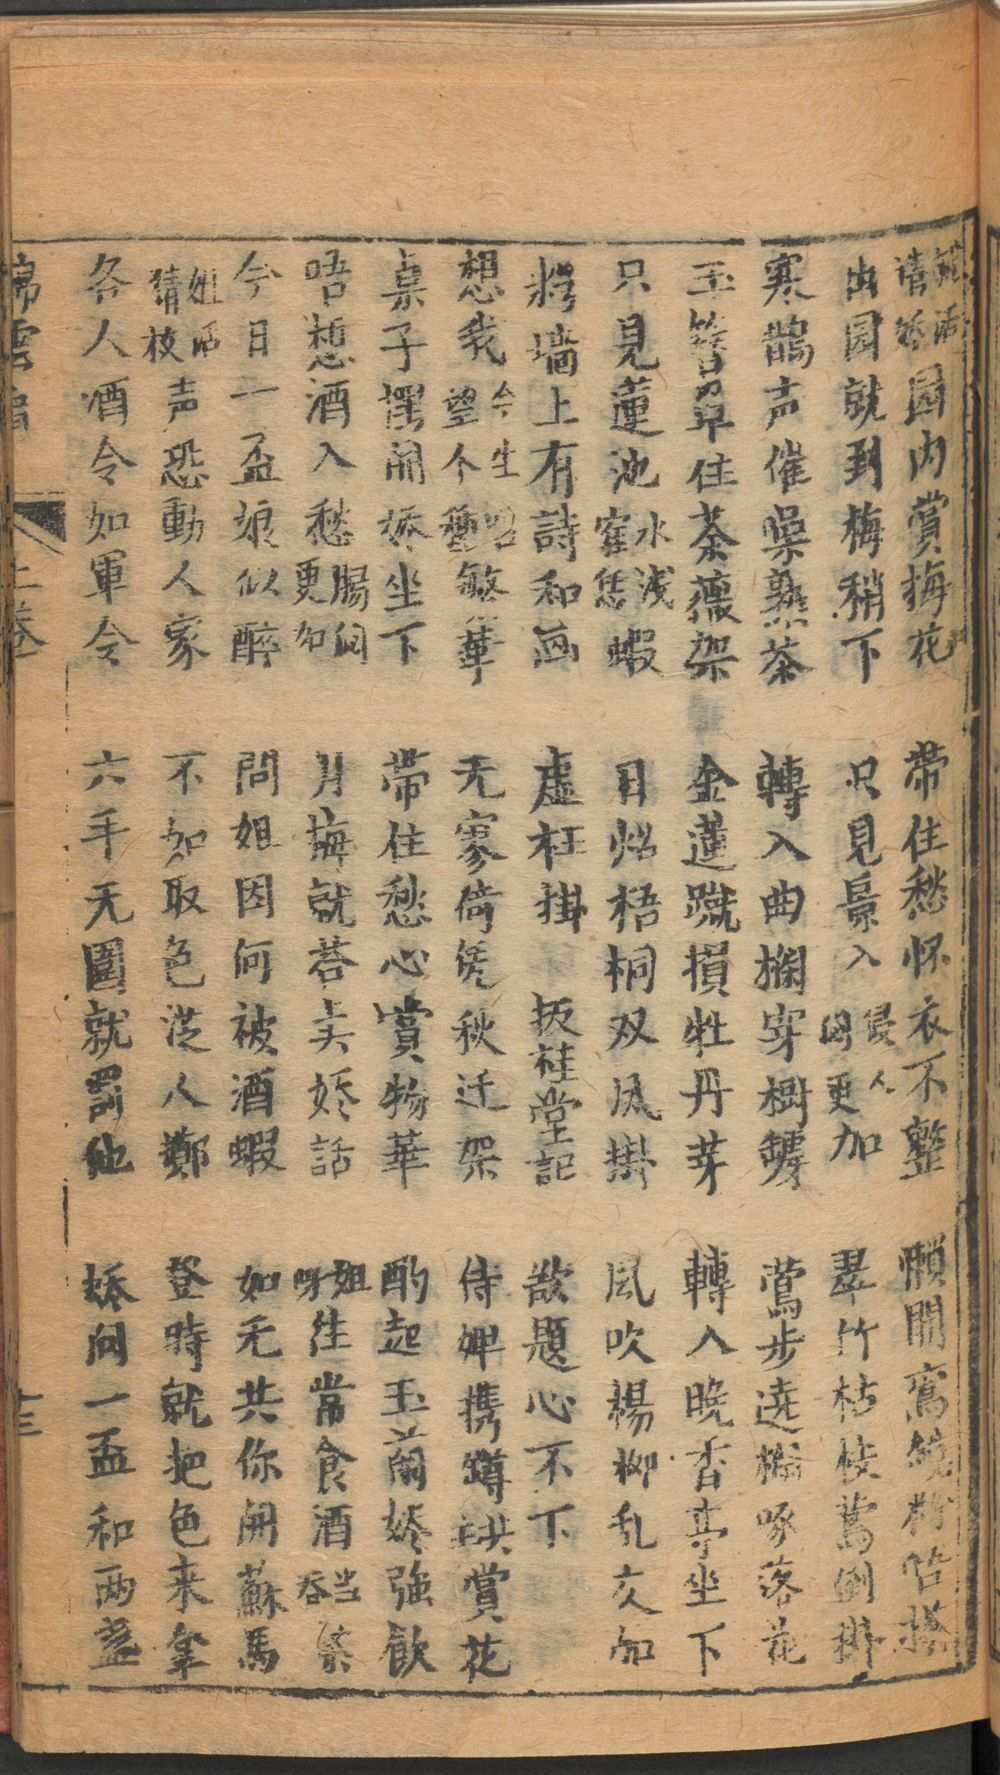 園内賞梅花　帶住愁怀衣不整　懶開鸞鏡粉
出园就到梅稍下　只見景入更加　翠竹枯枝蔦倒掛
寒鵲声催𤋮茶　轉入曲欄穿樹罅　鶯步遶欄啄落花
玉簪住荼薇架　金蓮蹴損牡丹芽　轉入晚香亭坐下
只見蓮池水浅蝦　日炤梧桐双凤掛　风吹楊柳乱交加
将墻上有詩和画　虚枉掛　扳桂堂記　欲題心不下
想我今生望个繁華　无寥倚凭秋迁架　侍婢携蹲請賞花
桌子擺開嬌坐下　帶住愁心賞物華　酌起玉蘭嬌強飲
唔想酒入愁腸悶更加　月梅就荅美嬌話　姐呀往常食酒当吞茶
今日一盃娘似醉　問姐因何被酒蝦　如无共你開蘇馬
姐話猜枝声恐動人家　不如取色从人擲　登時就把色来拿
各人酒令如軍令　六手无圍就罰他　嬌间一盃和兩盞
錦雲 上卷 十三